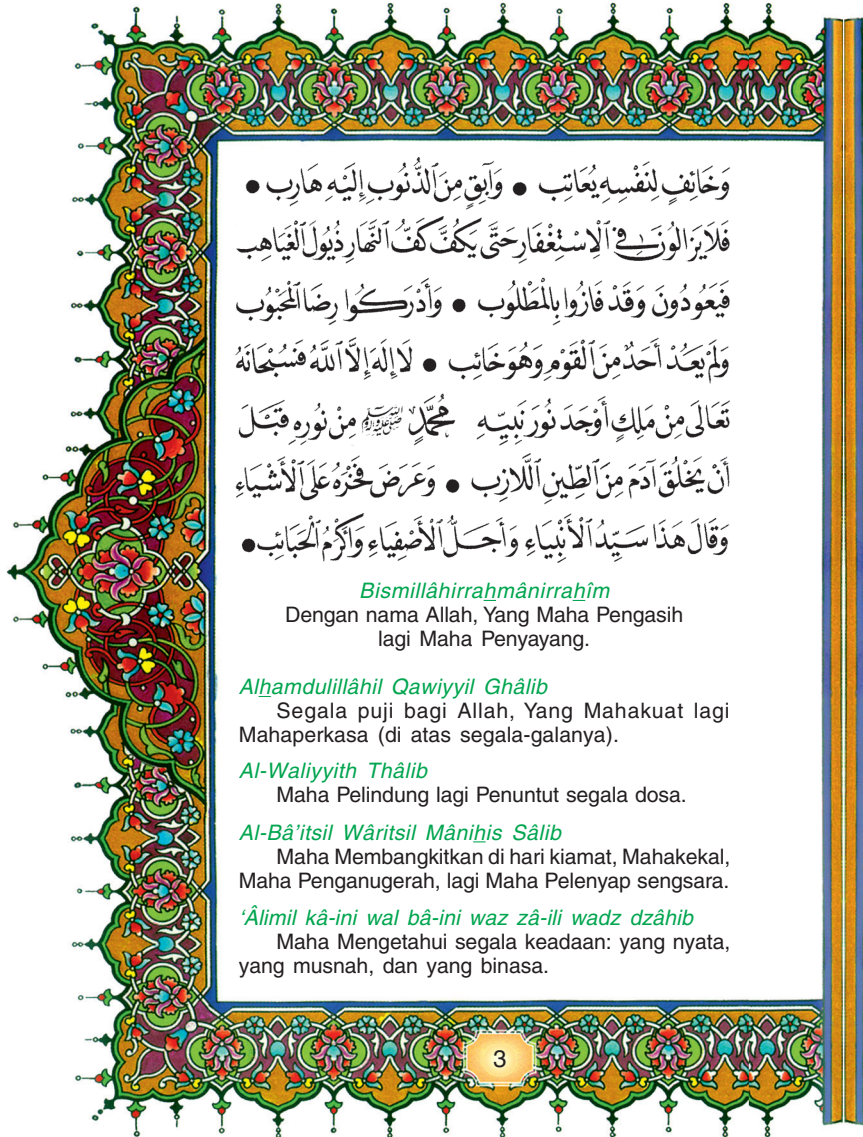 وَخَائِفٍ لِنَفْسِهِ يُعَاتِب ● وَآبِقٍ مِنَ ٱلذُّنُوبِ إِلَيْهِ هَارِب ●
فَلَايَزَالُونَ فِي ٱلْاِسْتِغْفَارِ حَتَّى يَكُفَّ كَفُّ ٱلنَّهَارِ ذُيُولَ ٱلْغَيَاهِب
فَيَعُودُونَ وَقَدْ فَازُوا بِالْمَطْلُوب ● وَأَدْرَكُوا رِضَا ٱلْمَحْبُوب
وَلَمْ يَعُدْ أَحَدٌ مِنَ ٱلْقَوْمِ وَهُوَ خَائِب ● لَا إِلَهَ إِلَّا ٱللَّهُ فَسُبْحَانَهُ
تَعَالَى مِنْ مَلِكٍ أَوْجَدَ نُورَ نَبِيِّهِ مُحَمَّدٍ ﷺ مِنْ نُورِهِ قَبْلَ
أَنْ يَخْلُقَ آدَمَ مِنَ ٱلطِّينِ ٱللَّازِب ● وَعَرَضَ فَخْرَهُ عَلَى ٱلْأَشْيَاءِ
وَقَالَ هَذَا سَيِّدُ ٱلْأَنْبِيَاءِ وَأَجَلُّ ٱلْأَصْفِيَاءِ وَأَكْرَمُ ٱلْحَبَائِبِ●
Bismillâhirrahmânirrahîm
Dengan nama Allah, Yang Maha Pengasih
lagi Maha Penyayang.
Alhamdulillâhil Qawiyyil Ghâlib
Segala puji bagi Allah, Yang Mahakuat lagi
Mahaperkasa (di atas segala-galanya).
Al-Waliyyith Thâlib
Maha Pelindung lagi Penuntut segala dosa.
Al-Bâ’itsil Wâritsil Mânihis Sâlib
Maha Membangkitkan di hari kiamat, Mahakekal,
Maha Penganugerah, lagi Maha Pelenyap sengsara.
‘Âlimil kâ-ini wal bâ-ini waz zâ-ili wadz dzâhib
Maha Mengetahui segala keadaan: yang nyata,
yang musnah, dan yang binasa.
3